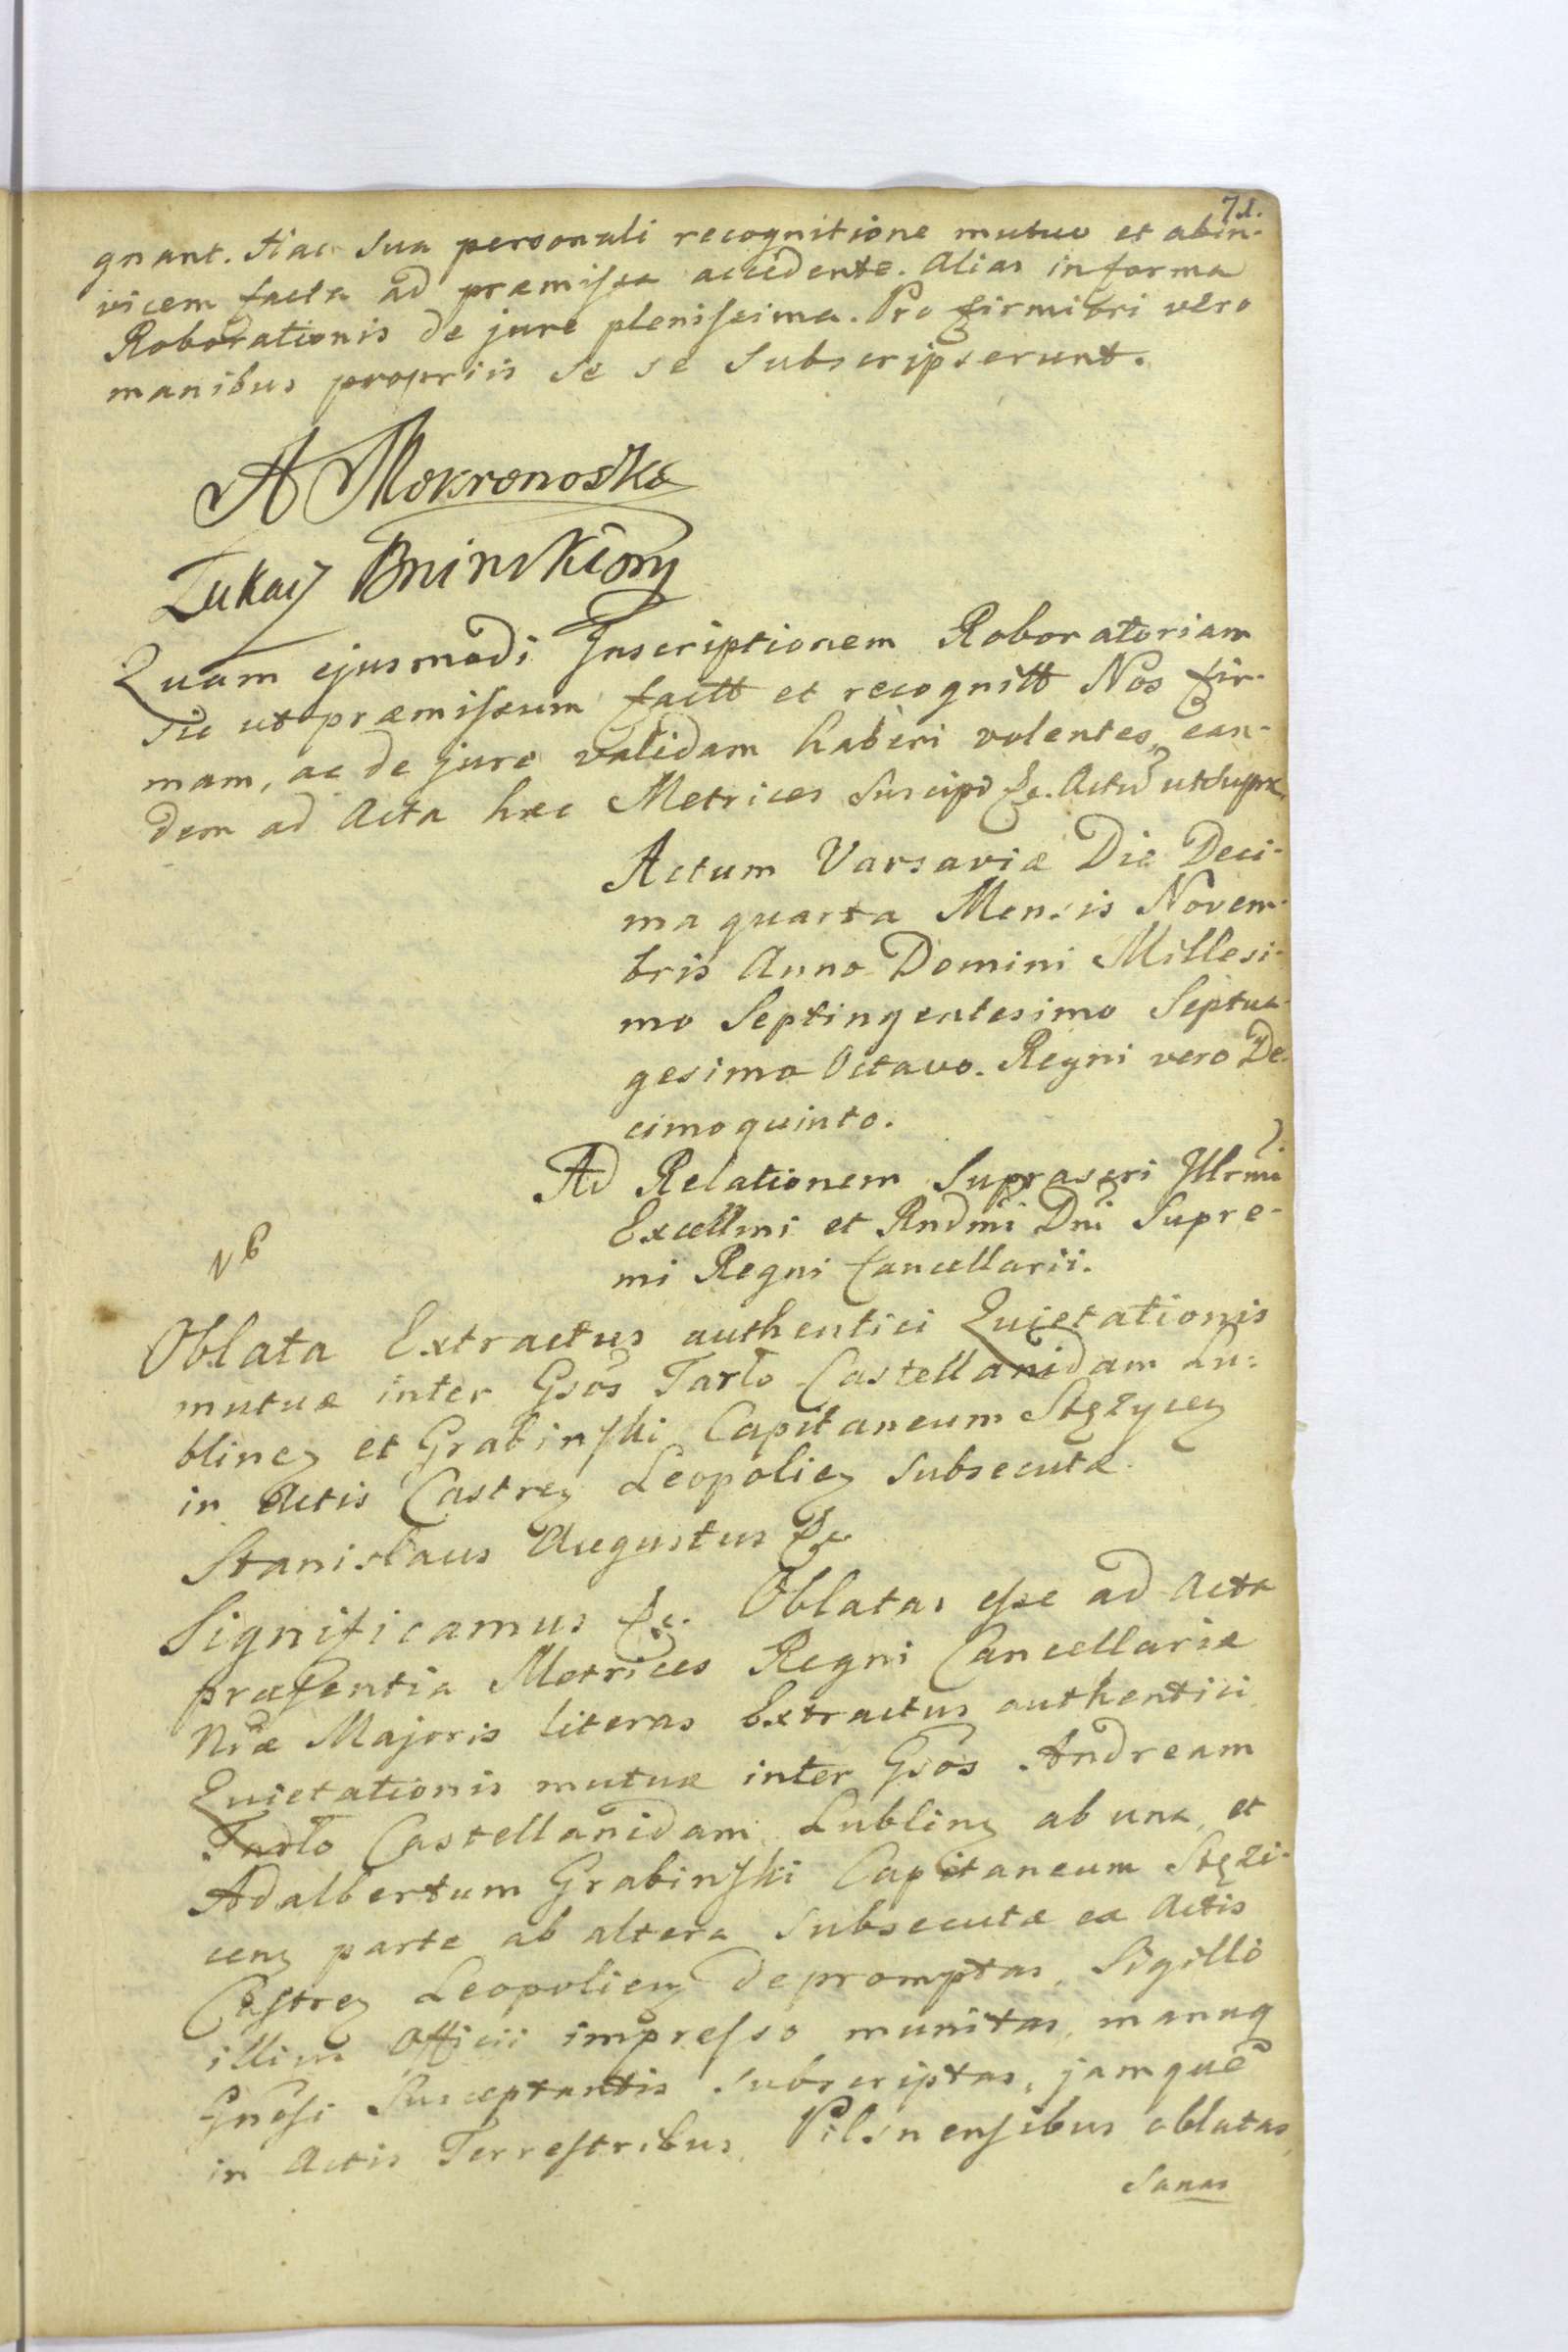 71.
gnant. Hac sua personali recognitione mutuo et abin-
vicem facta ad præmissa accedente. Alias in forma
Roborationis de jure plenissima. Pro firmiori vero
manibus propriis se se subscripserunt.
A Mokronoska
Łukasz Bninski
Quam ejusmodi Inscriptionem Roboratoriam
sic ut præmissum factt et recognitt Nos fir-
mam, ac de jure validam haberi volentes, ean-
dem ad Acta hæc Metrices suscipd &c. Actu utsupra
Actum Varsaviæ Die Deci-
ma quarta Mensis Novem-
bris Anno Domini Millesi-
mo Septingentesimo Septua-
gesimo Octavo. Regni vero De-
cimo quinto.
Ad Relationem Suprascri Illrmi
Excellmi et Rndmi Dni Supre-
mi Regni Cancellarii.
Oblata Extractus authentici Quietationis
mutuæ inter Gsos Tarło Castellanidam Lu-
blineɳ et Grabinski Capitaneum Stężyceɳ
in Actis Castreɳ Leopolieɳ subsecutæ.
Stanislaus Augustus &c
Significamus &c. Oblatas esse ad Acta
præsentia Metrices Regni Cancellariæ
Nræ Majoris literas Extractus authentici
Quietationis mutuæ inter Gsos Andream
Tarło Castellanidam Lublinɳ ab una, et
Adalbertum Grabinski Capitaneum Stęzi-
cenɳ parte ab altera subsecutæ ex Actis
Castreɳ Leopolienɳ depromptas, Sigillo
illius Officii impresso munitas, manuq
Gnosi Susceptantis subscriptas, jamque
in Actis Terrestribus Pilsnensibus oblatas,
Sanas